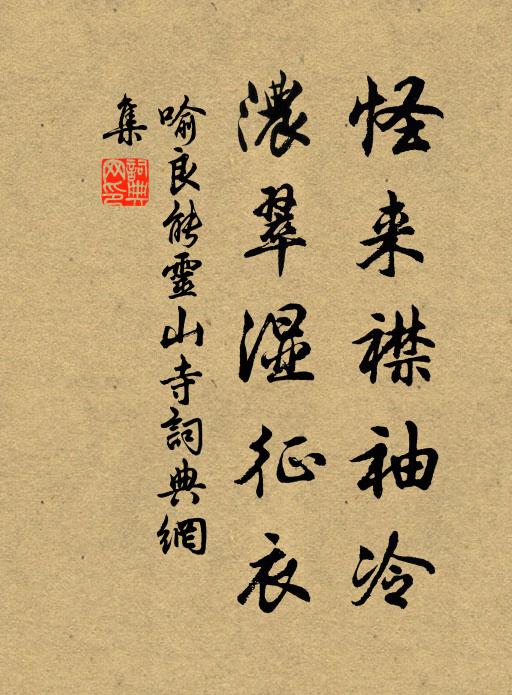 怪来襟袖冷
濃翠湿征衣
喻良能靈山寺詞典網
集
詞典网印